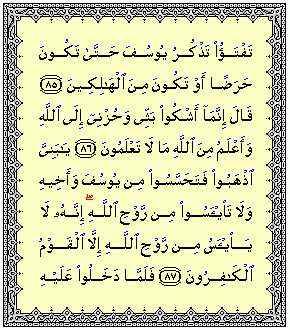 تَفْتَؤُا۟ تَذْكُرُ يُوسُفَ حَتَّىٰ تَكُونَ
حَرَضًا أَوْ تَكُونَ مِنَ ٱلْهَٰلِكِينَ ۝٨٥
قَالَ إِنَّمَآ أَشْكُوا۟ بَثِّى وَحُزْنِىٓ إِلَى ٱللَّهِ
وَأَعْلَمُ مِنَ ٱللَّهِ مَا لَا تَعْلَمُونَ ۝٨٦ يَٰبَنِىَّ
ٱذْهَبُوا۟ فَتَحَسَّسُوا۟ مِن يُوسُفَ وَأَخِيهِ
وَلَا تَا۟يْـَٔسُوا۟ مِن رَّوْحِ ٱللَّهِ ۖ إِنَّهُۥ لَا
يَا۟يْـَٔسُ مِن رَّوْحِ ٱللَّهِ إِلَّا ٱلْقَوْمُ
ٱلْكَٰفِرُونَ ۝٨٧ فَلَمَّا دَخَلُوا۟ عَلَيْهِ